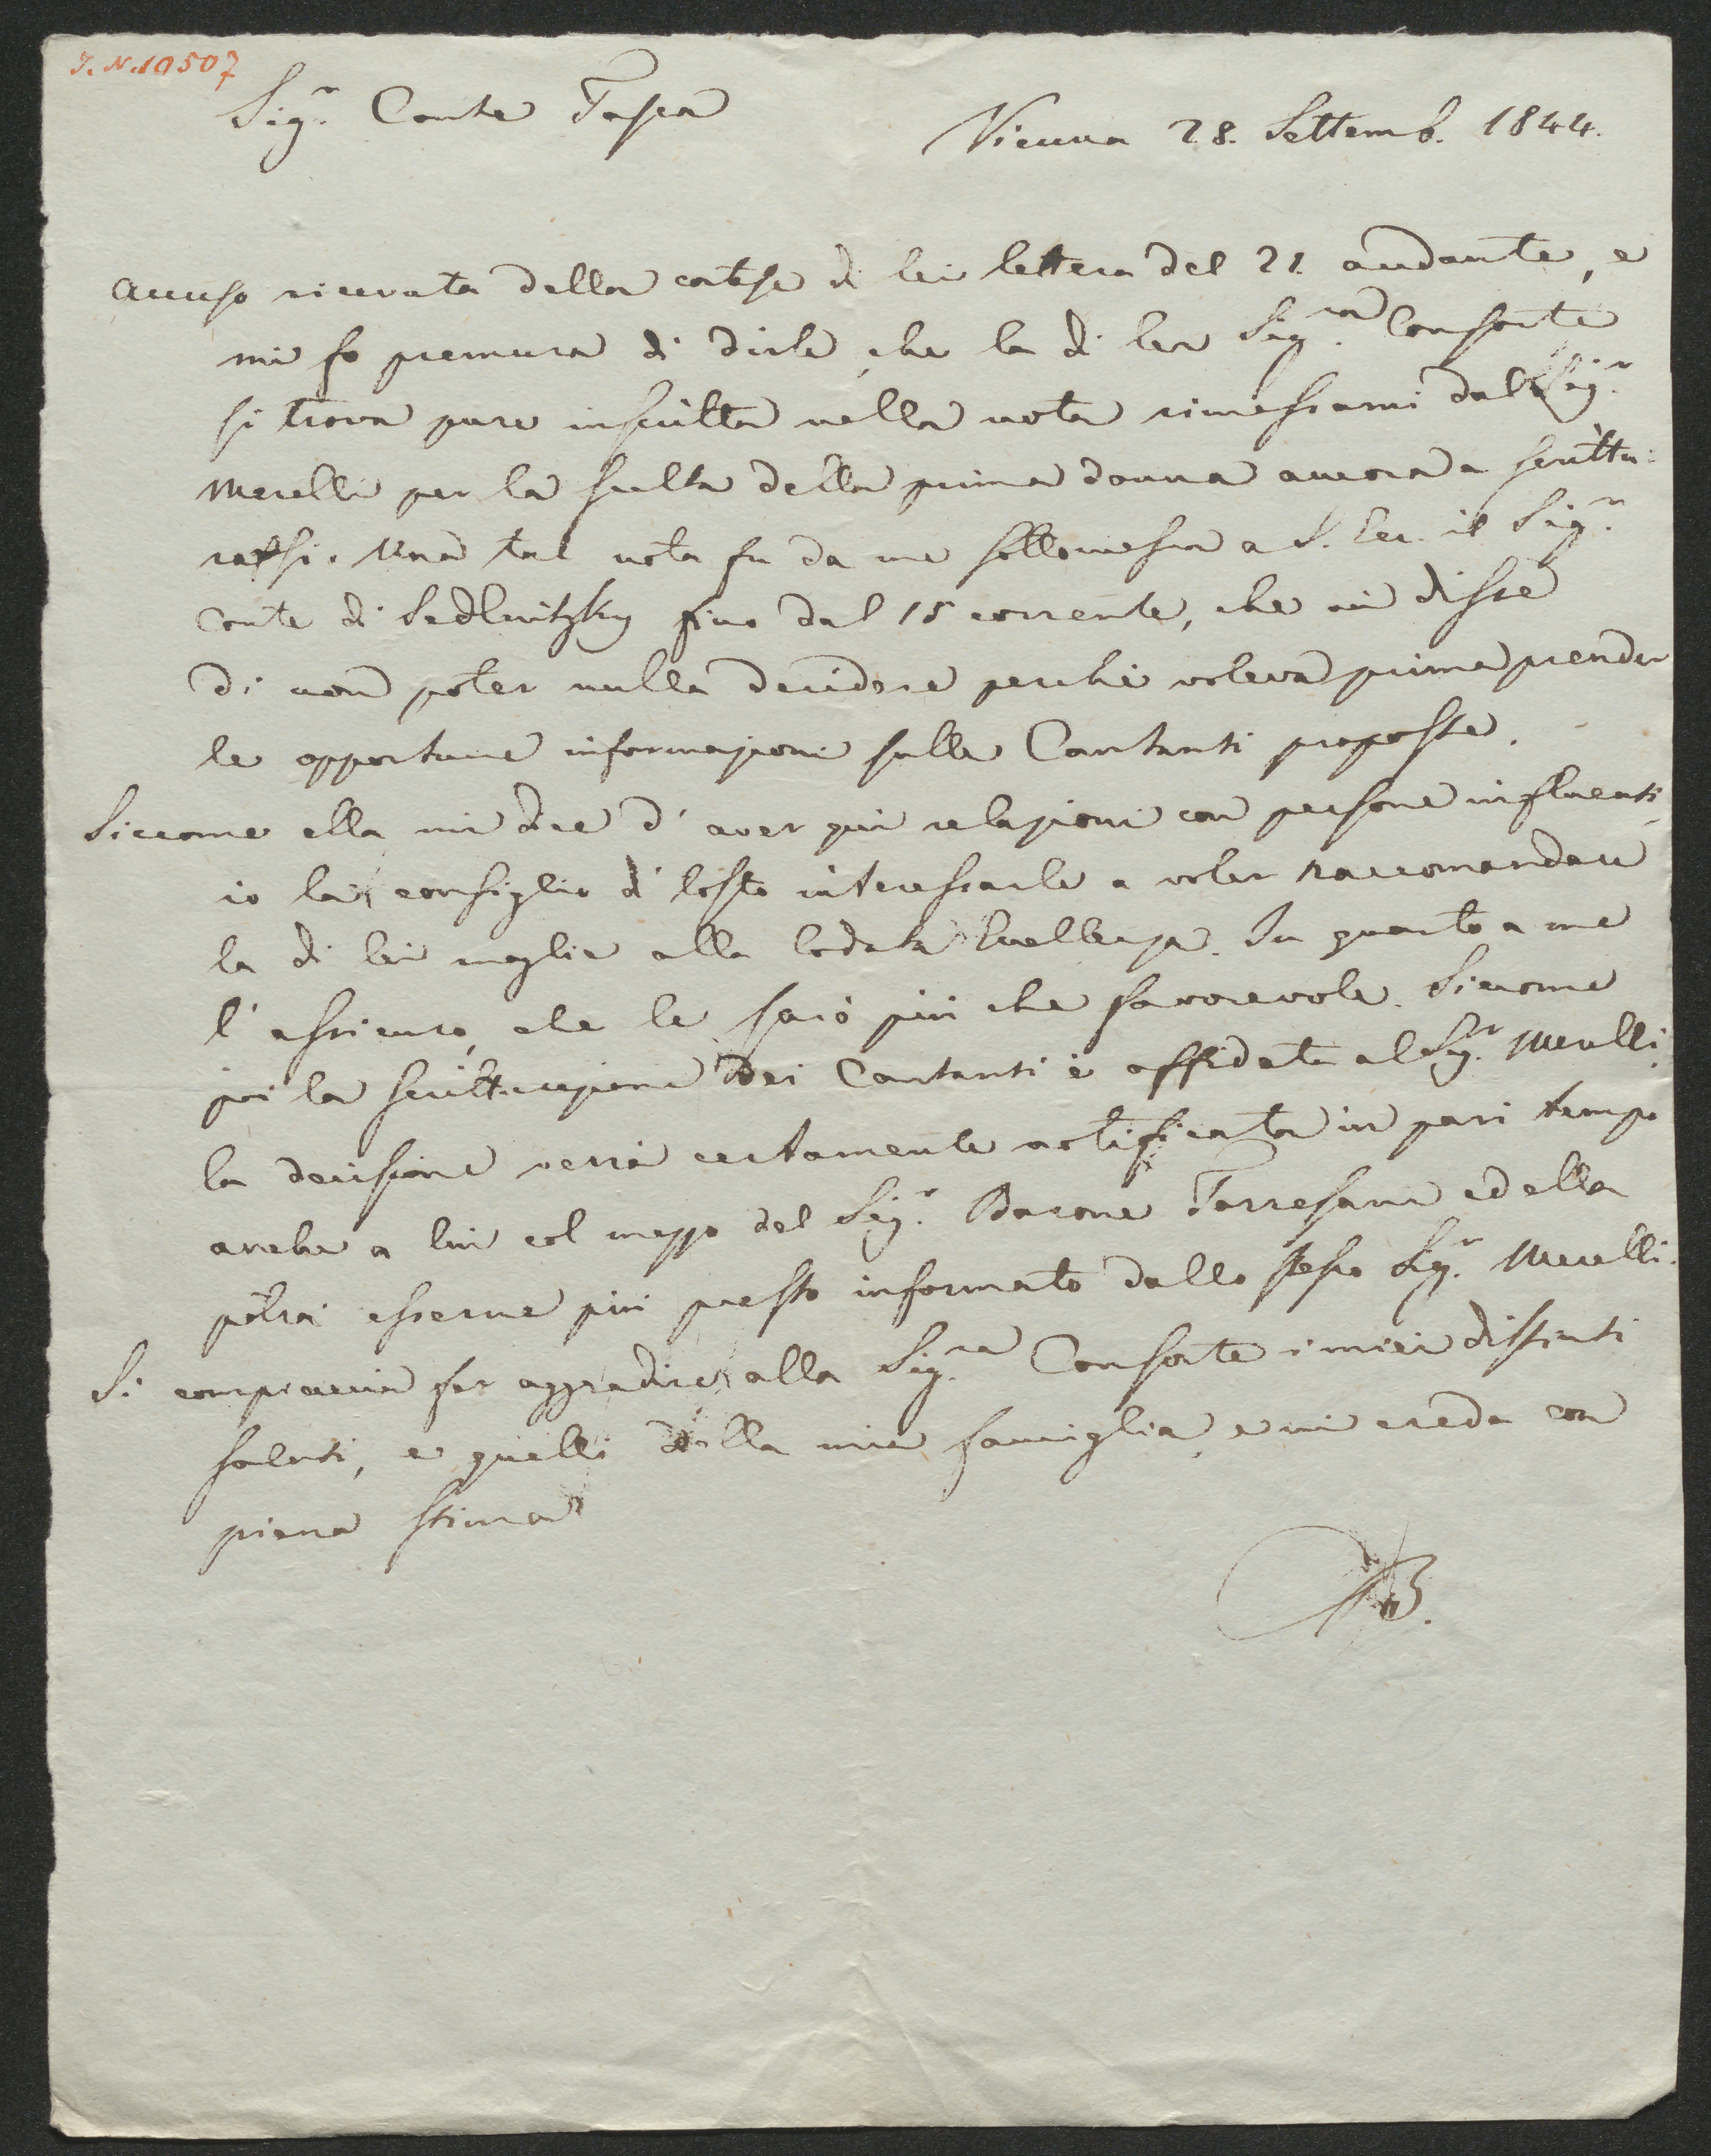 I. N. 10507
Sigr. Conte Tasca
Vienna 28. Settemb. 1844.
Accuso ricevuta della cortese di lei lettera del 21 andante, e
mi fo premura di dirle, che la di lei Sigra. Consorte
si trova pure inscritta nella nota rimessami dal Sigr.
Merelli per la scelta della prima donna ancora a scrittu-
rarsi. Una tal nota fu da me sottomessa a S. Ecc. il Sigr.
Conte di Sedlnitzky fino dal 15 corrente, che mi disse
di non poter nulla decidere perchè voleva prima prender
le opportune informazioni sulle Cantanti proposte.
Siccome ella mi dice d'aver qui relazioni con persone influenti,
io la consiglio d' tosto interessarle a voler raccomandare
la di lei moglie alla lodata Eccellenza. In quanto a me
l'assicuro, che le sarò più che favorevole. Siccome
poi la scritturazione dei Cantanti è affidata al Sigr. Merelli,
la decisione verrà certamente notificata in pari tempo
anche a lui col mezzo del Sigr. Barone Torresani ed ella
potrà esserne più presto informato dallo stesso Sigr. Merelli.
Si compiaccia far aggradire alla Sigra. Consorte i miei distinti
saluti, e quelli della mia famiglia, e mi creda con
piena stima
B.